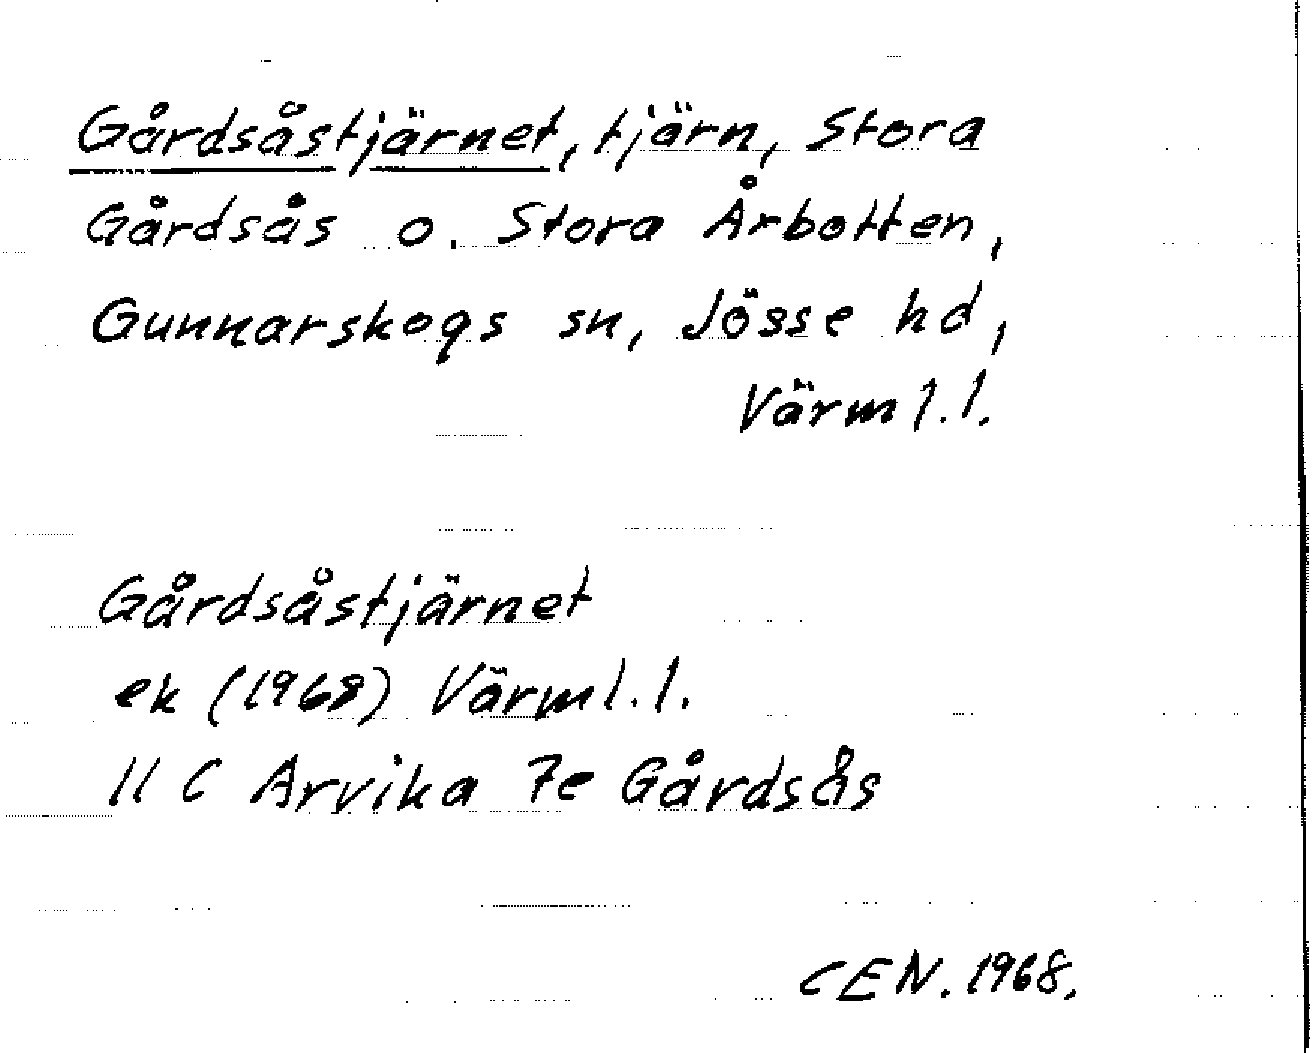 Gårdsåstjärnet, tjärn, Stora
Gårdsås o. Stora Årbotten,
Gunnarskogs sn, Jösse hd,
Värml.l.
Gårdsåstjärnet
ek (1968) Värml.l.
11 C Arvika 7e Gårdsås
CEN. 1968.